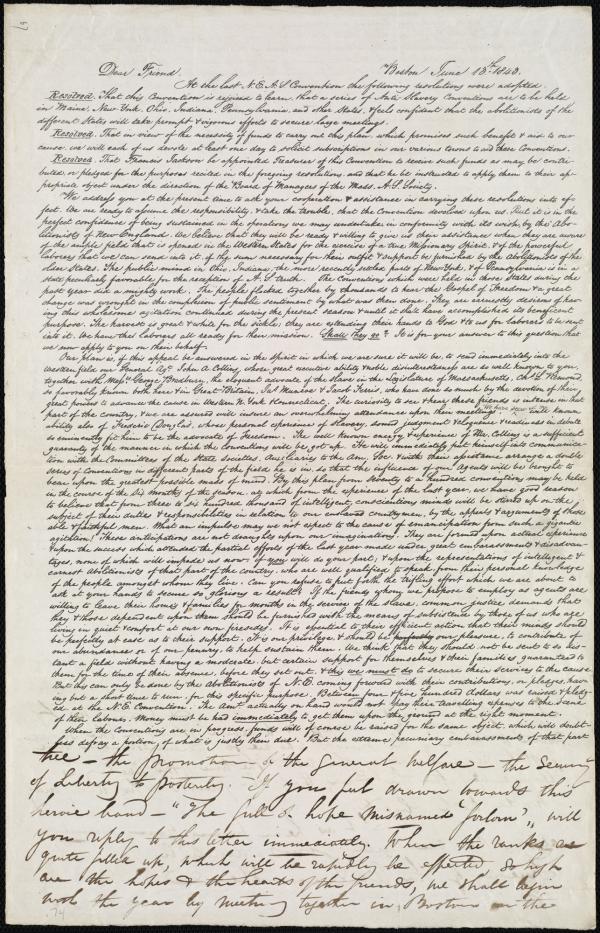 Dear Friend. Boston June 15th 1843.
At the last N.E.A.S Convention the following resolutions were adopted.
Resolved. That this Convention is rejoiced to learn, that a series of Anti Slavery Conventions are to be held
in Maine, New York, Ohio, Indiana, Pennsylvania, and other States, & feels confident that the abolitionists of the
different States will take prompt & vigorous efforts to secure large meetings.
Resolved. That in view of the necessity of funds to carry out this plan, which promises such benefit & aid to our
cause, we will each of us devote at least one day to solicit subscriptions in our various towns to aid these Conventions.
Resolved. That Francis Jackson be appointed Treasurer of this Convention to receive such funds as may be contri-
buted, or pledged for the purposes recited in the foregoing resolutions, and that he be instructed to apply them to their ap-
propriate object under the direction of the Board of Managers of the Mass. A.S. Society.
We address you at the present time to ask your cooperation & assistance in carrying these resolutions into ef-
fect. We are ready to assume the responsibility, & take the trouble, that the Convention devolved upon us. But it is in the
perfect confidence of being sustained in the operations we may undertake in conformity with its wish, by the Abo-
litionists of New England. We believe that they will be ready & willing to give us their assistance when they are aware
of the ample field that is opened in the Western States for the exercise of a true Missionary Spirit, & of the powerful
laborers that we can send into it, if the sums necessary for their outfit & support be furnished by the Abolitionists of the
older States. The public mind in Ohio, Indiana, the more recently settled parts of New York, & of Pennsylvania is in a
state peculiarly favorable for the reception of A.S. truth. The Conventions which were held in those States during the
past year did a mighty work. The people flocked together by thousands to hear the Gospel of Freedom & a great
change was wrought in the complexion of public sentiment by what was then done. They are earnestly desirous of hav-
ing this wholesome agitation continued during the present season & until it shall have accomplished its beneficent
purpose. The harvest is great & white for the sickle; they are extending their hands to God & to us for laborers to be sent
into it. We have these laborers all ready for their mission. Shall they go? It is for your answer to this question that
we now apply to you in their behalf.
Our plan is, if this appeal be answered in the spirit in which we are sure it will be, to send immediately into the
Western field our General Agt. John A. Collins, whose great executive ability & noble disinterestedness are so well known to you,
together with Messrs George Bradburn, the eloquent advocate of the slave in the Legislature of Massachusetts, Ch. L. Remond,
so favorably known both here & in Great Britain, Jas. Monroe & Jacob Ferris, who have done so much, by the devotion of their
great powers to advance the cause in Western N. York & Connecticut. The curiosity to see & hear these friends is intense in that
part of the country, & we are assured will insure an overwhelming attendance upon their meetings. The known
ability also of Frederic Douglas, whose personal experience of slavery, sound judgment & eloquence & readiness in debate
so eminently fit him to be the advocate of Freedom. The well known energy & experience of Mr. Collins is a sufficient
guaranty of the manner in which the Conventions will be got up. He will immediately put himself into communica-
tion with the Committees of the State Societies, Auxiliaries to the Am. Soc. & with their assistance arrange a double
series of Conventions in different parts of the field he is in, so that the influence of our Agents will be brought to
bear upon the greatest possible mass of mind. By this plan from seventy to a hundred conventions may be held
in the course of the six months of the season, at which from the experience of the last year, we have good reason
to believe that from three to six hundred thousand of intelligent, conscientious minds will be stirred up on the
subject of their duties & responsibilities in relation to our enslaved countrymen, by the appeals & arguments of those
able & faithful men. What an impulse may we not expect to the cause of emancipation from such a gigantic
agitation! These anticipations are not draughts upon our imaginations. They are formed upon actual experience
& upon the success which attended the partial efforts of the last year made under great embarrassments & disadvan-
tages, none of which will impede us now, if you will do your part; & upon the representations of intelligent &
earnest Abolitionists of that part of the country, who are well qualified to speak from their personal knowledge
of the people amongst whom they live. Can you refuse to put forth the trifling effort which we are about to
ask at your hands to secure so glorious a result? If the friends whom we propose to employ as agents are
willing to leave their homes & families for months in the service of the slave, common justice demands that
they & those dependent upon them should be furnished with the means of subsistence by those of us who are
living in quiet & comfort at our own firesides. It is essential to their efficient action that their minds should
be perfectly at ease as to their support. It is our privilege, & should be our pleasure, to contribute of
our abundance or of our penury, to help sustain them. We think that they should not be sent to so dis-
tant a field without having a moderate, but certain support for themselves & their families guaranteed to
them for the time of their absence, before they set out, & they we must do to secure their services to the cause.
But this can only be done by the abolitionists of N.E. coming forward with their contributions, or pledges, hav-
ing but a short time to run, for this specific purpose. Between four & five hundred dollars was raised & pledg-
ed at the N.E. Convention. The amt. actually on hand would not pay their travelling expenses to the scene
of their labors. Money must be had immediately to get them upon the ground at the right moment.
When the Conventions are in progress, funds will of course be raised for the same object, which will doubt-
less defray a portion of what is justly their due. But the extreme pecuniary embarrassments of that part
tice – the promotion of the General Welfare – the Security
of Liberty to Posterity. If you feel drawn towards this
heroic band – "The full of hope misnamed 'forlorn'", will
you reply to this letter immediately. When the ranks are
quite filled up, which will be rapidly be effected so high
are the hopes & the hearts of the friends, we shall begin
with the year by meeting together in Boston on the